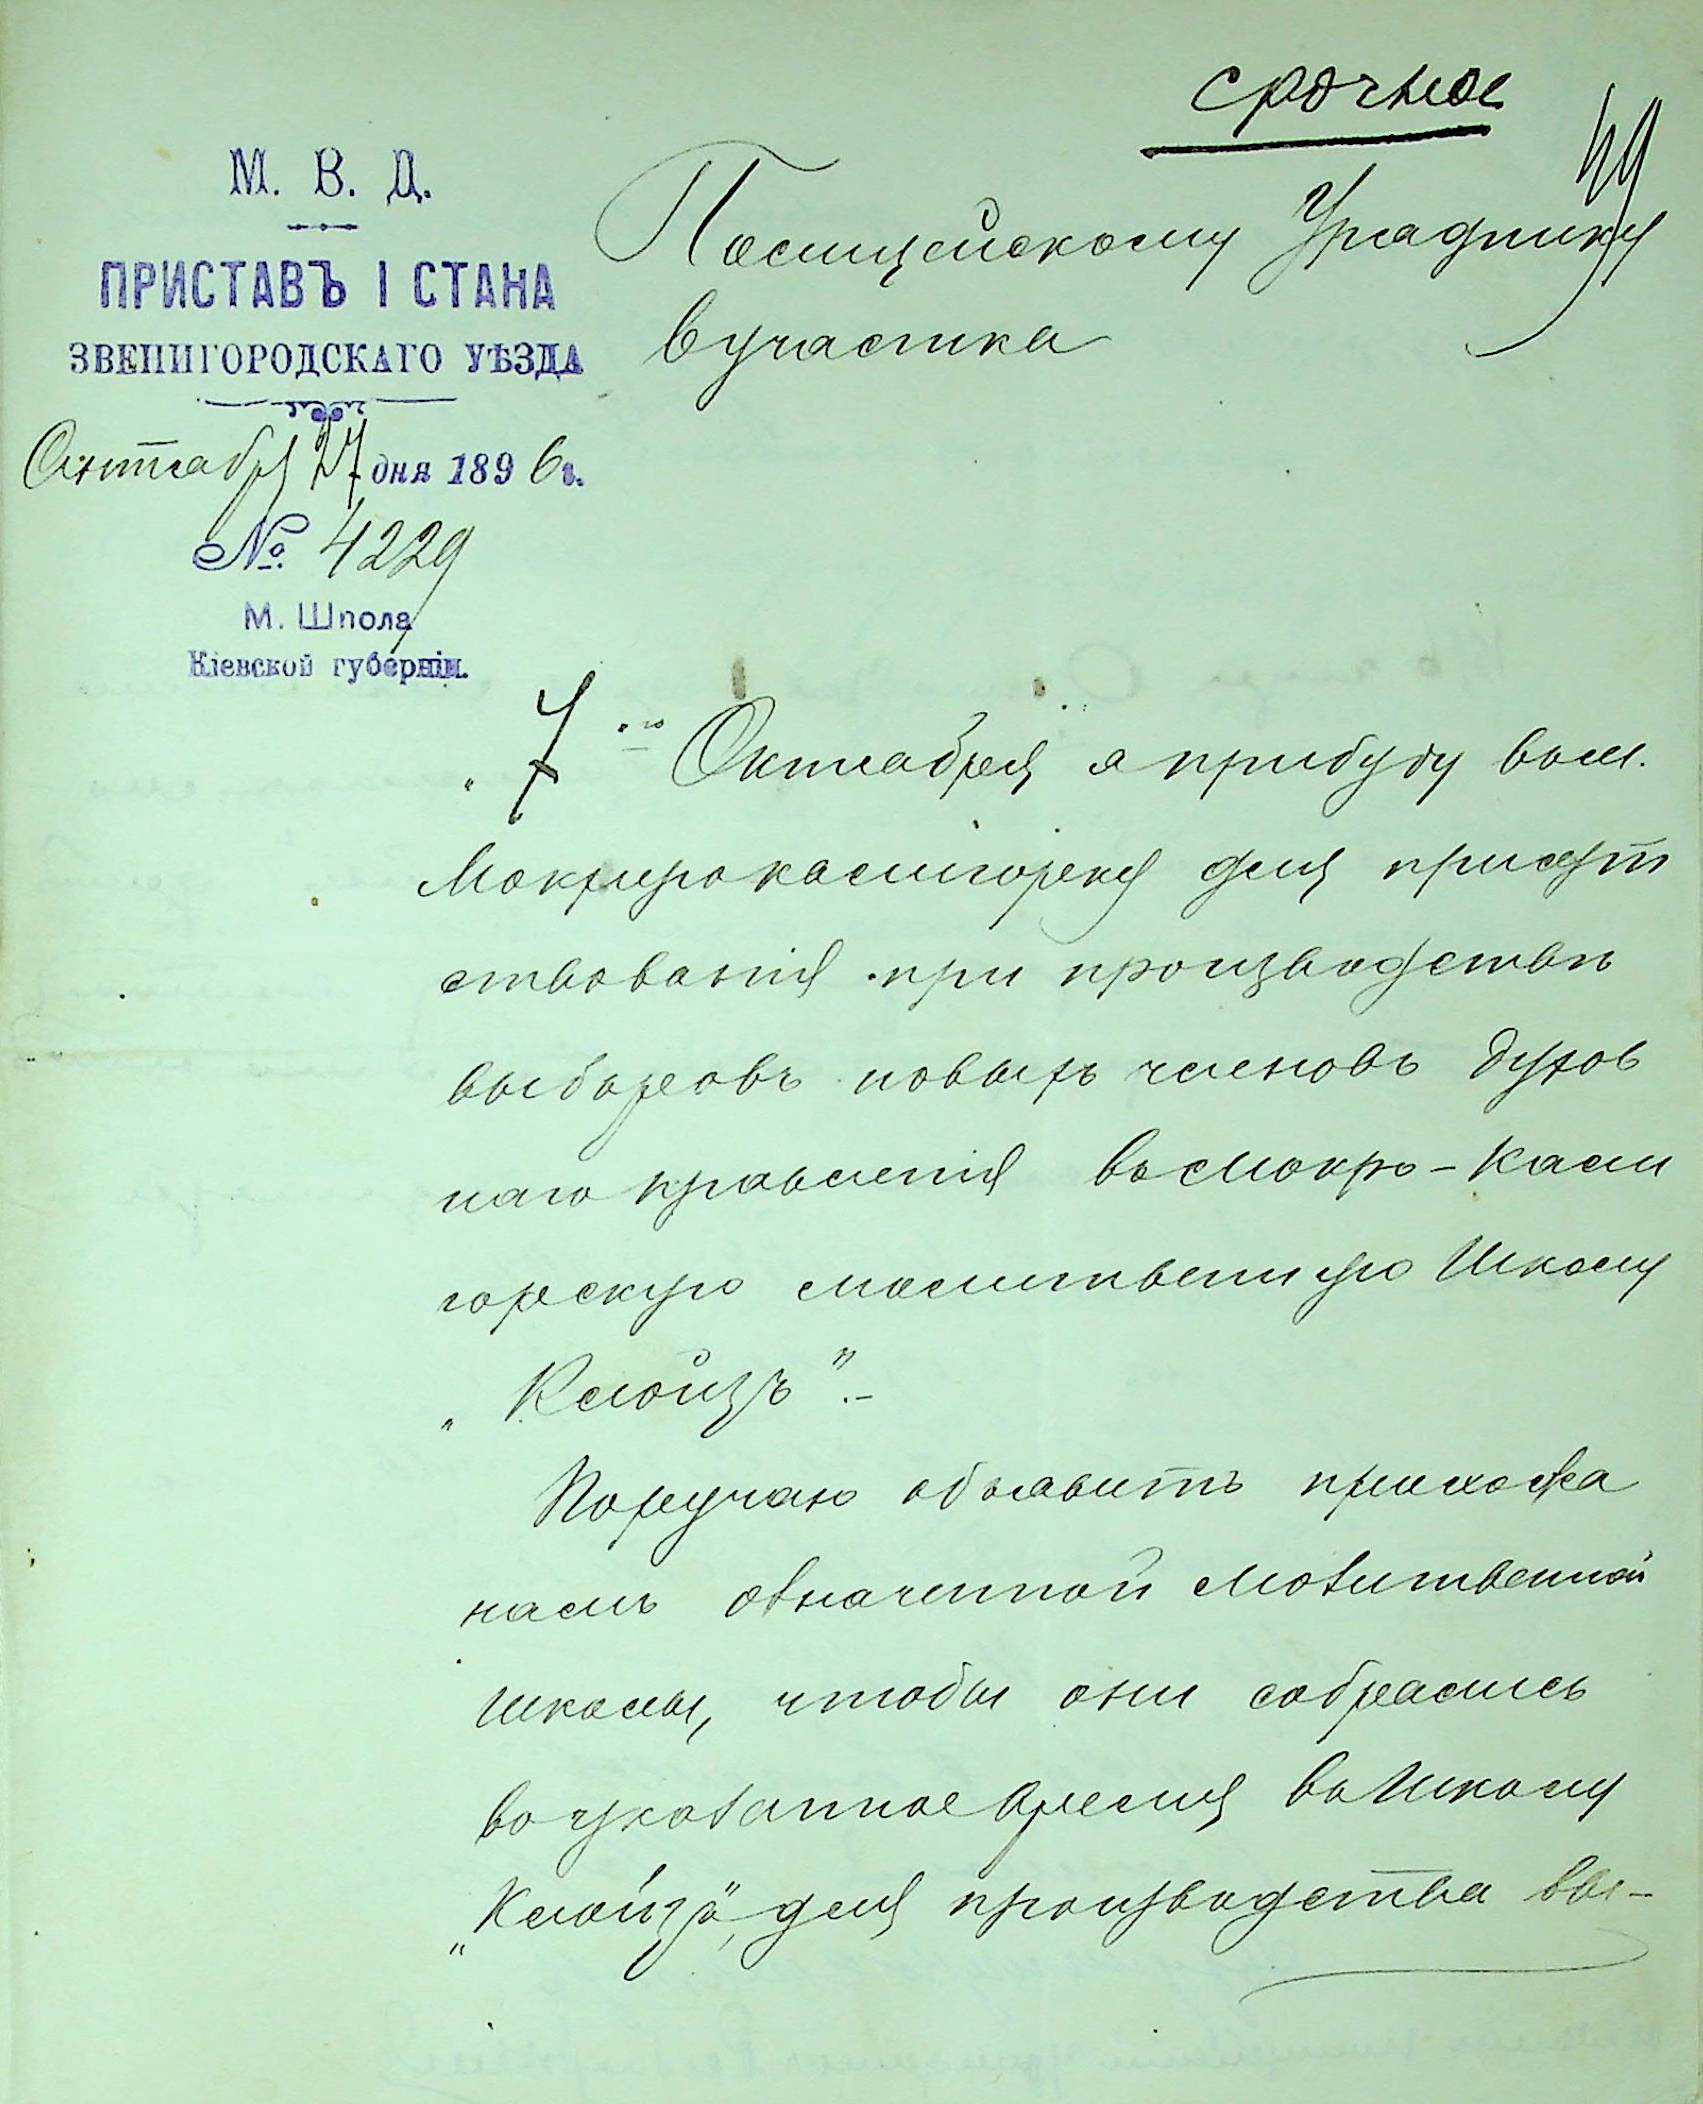 срочное
49
М. В. Д.
ПРИСТАВЪ I СТАНА
ЗВЕНИГОРОДСКАГО УѢЗДА
27 дня 1896 г.
№ 4229
М. Шпола
Кіевской губерніи.
Полицейскому Уряднику
6 участка
„7"го Октября я прибуду въ м.
Мокрую калигорку для присут
ствованія при производствѣ
выборовъ новыхъ членовъ духов
наго правленія въ Мокро-Кали
горскую молитвенную Школу
„Клойзъ".-
Поручаю объявить прихожа
намъ означенной молитвенной
школы, чтобы они собрались
въ указанное время въ Школу
„Клойзъ", для производства вы-